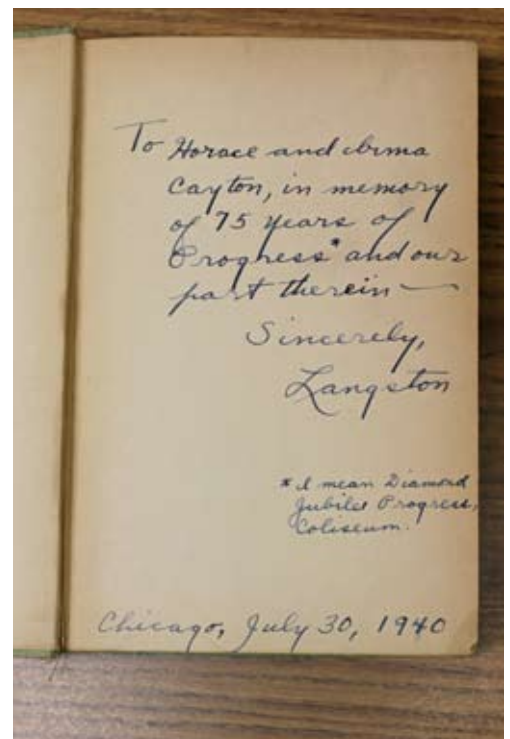 To Horace and Irma
Cayton, in memory
of 75 years of
Progress* and our
part therein —
Sincerely,
Langston
* I mean Diamond
Jubilee Progress,
Coliseum.
Chicago, July 30, 1940